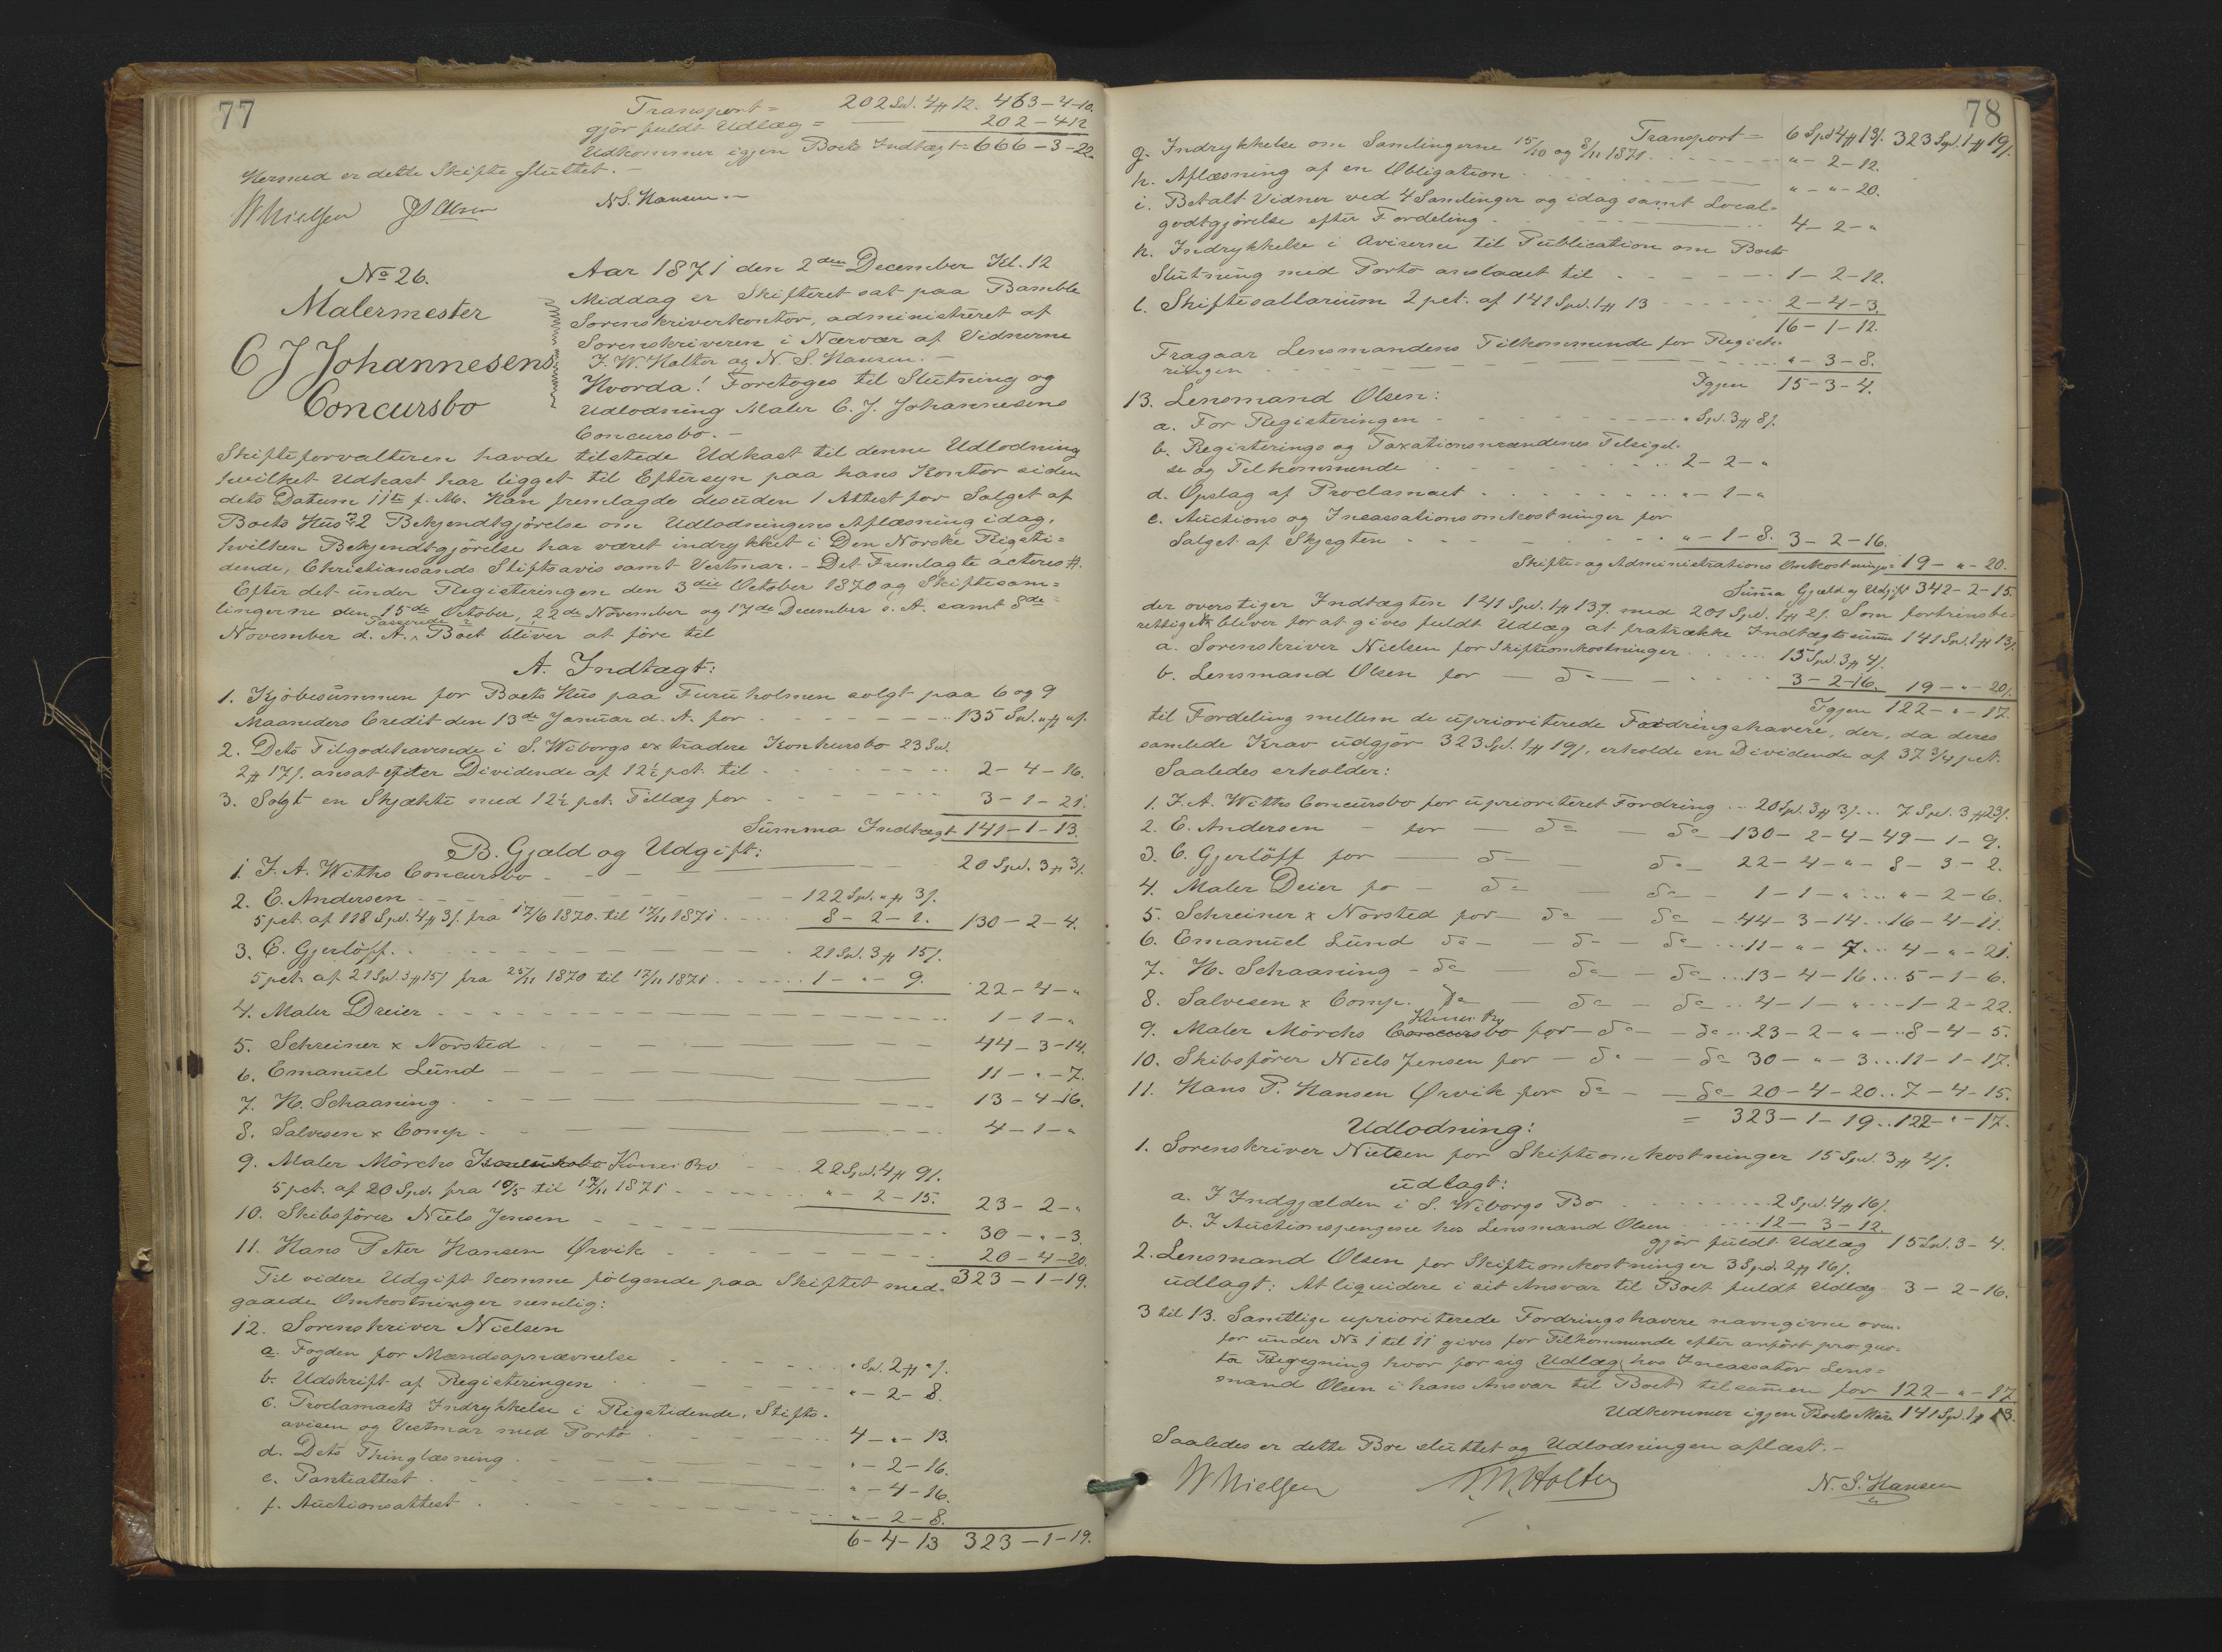 77
Transport = 202 Spd. 4 # 12. 463-4-10.
gjör fuldt Udlæg = — 202-4-12
Udkommer igjen Boets Indtægt = 666-3-22.
Hermed er dette Skifte sluttet. —
WNielsen JOlsen N S. Hansen. —
No 26.
Malermester
C J Johannesens
Concursbo
Aar 1871 den 2den December Kl. 12
Middag er Skifteret sat paa Bamble
Sorenskriverkontor, administreret af
Sorenskriveren i Nærvær af Vidnerne
J. W. Holter og N. S. Hansen. —
Hvorda! Foretoges til Slutning og
Udlodning Maler C. J. Johannesens
Concursbo. —
Skifteforvalteren havde tilstede Udkast til denne Udlodning
hvilket Udkast har ligget til Eftersyn paa hans Kontor siden
dets Datum 11te f. M. Han fremlagde desuden 1 Attest for Salget af
Boets Hus, 2 Bekjendtgjörelse om Udlodningens Aflæsning idag,
hvilken Bekjendtgjörelse har været indrykket i Den Norske Rigsti=
dende, Christiansands Stiftsavis samt Vestmar. – Det Fremlagte acteres #.
Efter det under Registeringen den 3die October 1870 og Skiftesam=
lingerne den 15de October, 22de November og 17de December s. A. samt 8de
November d. A. Passerede Boet bliver at före til
A. Indtægt:
1. Kjöbesummen for Boets Hus paa Furuholmen solgt paa 6 og 9
Maaneders Credit den 13de Januar d. A. for - - - 135 Spd. " # " ß.
2. Dets Tilgodehavende i S. Wiborgs extradere Konkursbo 23 Spd.
2 # 17 ß. ansat efter Dividende af 12½ pct. til - - - 2-4-16.
3. Solgt en Skjækte med 12½ pct. Tillæg for - - - 3-1-21.
Summa Indtægt 141-1-13.
B. Gjæld og Udgift:
1. J. A. Withs Concursbo - - - 20 Spd. 3 # 3 ß.
2. E. Andersen - - - 122 Spd. " # 3 ß.
5 pct. af 118 Spd. 4 # 3 ß. fra 17/6 1870. til 17/11 1871 - - - 8-2-1. 130-2-4.
3. C. Gjerlöff. - - - 21 Spd. 3 # 15 ß.
5 pct. af 21 Spd. 3 # 15 ß fra 25/11 1870 til 17/11 1871 - - - 1-"-9. 22-4-"
4. Maler Dreier - - - 1-1-"
5. Schreiner & Norsted - - - 44-3-14.
6. Emanuel Lund - - - 11-"-7.
7. H. Schaaning - - - 13-4-16.
8. Salvesen & Comp - - - 4-1-"
9. Maler Mörchs Konkursbo Kunes Bo - - - 22 Spd. 4 # 9 ß.
5 pct. af 20 Spd. fra 10/5 til 17/11 1871 - - - "-2-15. 23-2-"
10. Skibsförer Niels Jensen - - - 30-"-3.
11. Hans Peter Hansen Ørvik - - - 20-4-20.
323-1-19.
Til videre Udgift komme fölgende paa Skiftet med=
gaaede Omkostninger nemlig:
12. Sorenskriver Nielsen
a. Fogden for Mændsopnævnelse - - - " Spd. 2 # " ß.
b. Udskrift af Registeringen - - - "-2-8.
c. Proclamaets Indrykkelse i Rigstidende, Stifts=
avisen og Vestmar med Porto - - - 4-"-13.
d. Dets Thinglæsning - - - "-2-16.
e. Panteattest - - - "-4-16.
f. Auctionsattest - - - "-2-8.
6-4-13 323-1-19.
78
Transport = 6 Spd 4 # 13 ß. 323 Spd. 1 # 19 ß.
g. Indrykkelse om Samlingerne 15/10 og 8/11 1871. - - - "-2-12.
h. Aflæsning af en Obligation - - - "-"-20.
i. Betalt Vidner ved 4 Samlinger og idag samt Local=
godtgjörelse efter Fordeling - - - 4-2-"
k. Indrykkelse i Aviserne til Publication om Boets
Slutning med Porto anslaaet til - - - 1-2-12.
l. Skiftesallarium 2 pct. af 141 Spd. 1 # 13 - - - 2-4-3.
16-1-12.
Fragaar Lensmandens Tilkommende for Registe=
ringen - - - "-3-8.
Igjen 15-3-4.
13. Lensmand Olsen:
a. For Registeringen - - - " Spd. 3 # 8 ß.
b. Registerings og Taxationsmændenes Tilsigel=
se og Tilkommende - - - 2-2-"
d. Opslag af Proclamaet - - - "-1-"
e. Auctions og Incassationsomkostninger for
Salget af Skjægten - - - "-1-8. 3-2-16.
Skifte- og Administrations Omkostninger = 19-"-20.
Summa Gjæld og Udgift 342-2-15.
der overstiger Indtægten 141 Spd. 1 # 13 ß. med 201 Spd. 1 # 2 ß. Som fortrinsbe=
rettiget bliver for at gives fuldt Udlæg at fratrække Indtægtssumm 141 Spd. 1 # 13 ß.
a. Sorenskriver Nielsen for Skifteomkostninger - - - 15 Spd. 3 # 4 ß.
b. Lensmand Olsen for — do — - - - 3-2-16. 19-"-20 ß.
Igjen 122-"-17.
til Fordeling mellem de uprioriterede Fordringshavere, der, da deres
samlede Krav udgjör 323 Spd. 1 # 19 ß, erholde en Dividende af 37 3/4 pct.
Saaledes erholder:
1. J. A. Withs Concursbo for uprioriteret Fordring - - 20 Spd. 3 # 3 ß. - - 7 Spd. 3 # 23 ß.
2. E. Andersen - for — do — do — 130-2-4-49-1-9.
3. C. Gjerlöff for — do — do — 22-4-"-8-3-2.
4. Maler Deier fo — do — do — 1-1-" - - "-2-6.
5. Schreiner & Norsted for — do — do — 44-3-14 - - 16-4-11.
6. Emanuel Lund do — do — do - - 11-"-7 - - 4-"-21.
7. H. Schaaning - do — do — do - - 13-4-16 - - 5-1-6.
8. Salvesen & Comp. do — do — do - - 4-1-" - - 1-2-22.
9. Maler Mörchs Concursbo Kunes Bo for — do — do - - 23-2-" - - 8-4-5.
10. Skibsförer Niels Jensen for — do — do 30-"-3 - - 11-1-17.
11. Hans P. Hansen Ørvik for do — do 20-4-20 - - 7-4-15.
= 323-1-19 - - 122-"-17.
Udlodning:
1. Sorenskriver Nielsen for Skifteomkostninger 15 Spd. 3 # 4 ß.
udlagt:
a. I Indgjælden i S. Wiborgs Bo - - - 2 Spd. 4 # 16 ß.
b. I Auctionspengene hos Lensmand Olsen - - - 12-3-12.
gjör fuldt Udlæg 15 Spd. 3-4.
2. Lensmand Olsen for Skifteomkostninger 3 Spd. 2 # 16 ß.
udlagt: At liquidere i sit Ansvar til Boet fuldt Udlæg 3-2-16.
3 til 13. Samtlige uprioriterede Fordringshavere navngivne oven=
for under No 1 til 11 gives for Tilkommende efter anfört pro quo=
ta Beregning hver for sig Udlæg hos Incassator Lens=
mand Olsen i hans Ansvar til Boet tilsammen for 122-"-17.
Udkommer igjen Boets Masse 141 Spd. 1 # 13.
Saaledes er dette Boe sluttet og Udlodningen aflæst. —
WNielsen J.W.Holter N. S. Hansen